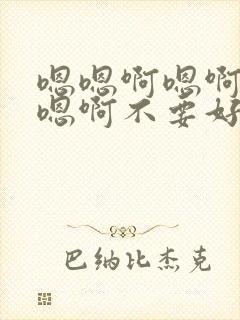 嗯嗯啊嗯啊
嗯啊不要好
巴纳比杰克